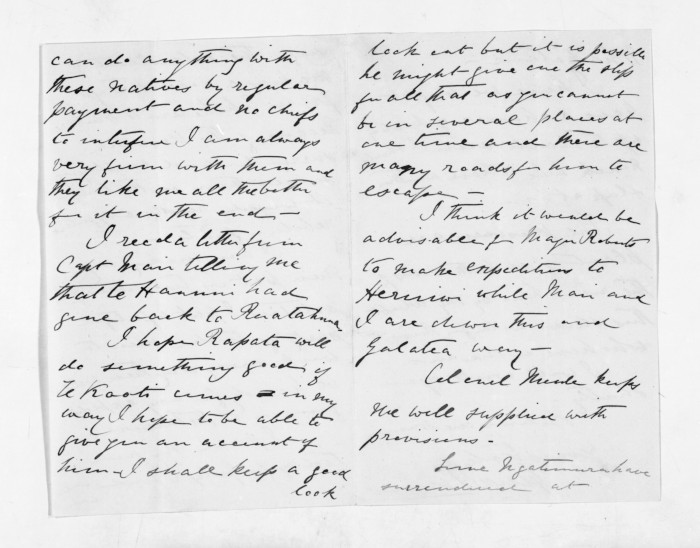 can do anything with
these natives by regular
payment and no chiefs
to interfere I am always
very firm with them and
they like me all the better
for it in the end —
I recd a letter from
Capt Mair telling me
that te Hanuni had
gone back to Ruatahuna
I hope Rapata will
do something good if
Te Kooti comes in my
way I hope to be able to
give you an account of
him — I shall keep a good
look
look out but it is possible
he might give one the slip
for all that as you cannot
be in several places at
one time and there are
many roads for him to
escape —
I think it would be
advisable for Major Roberts
to make expeditions to
while Mair and
I are down this and
Galatea way —
Colonel keeps
me well supplied with
provisions -
Some Ngatimura have
surrendered at